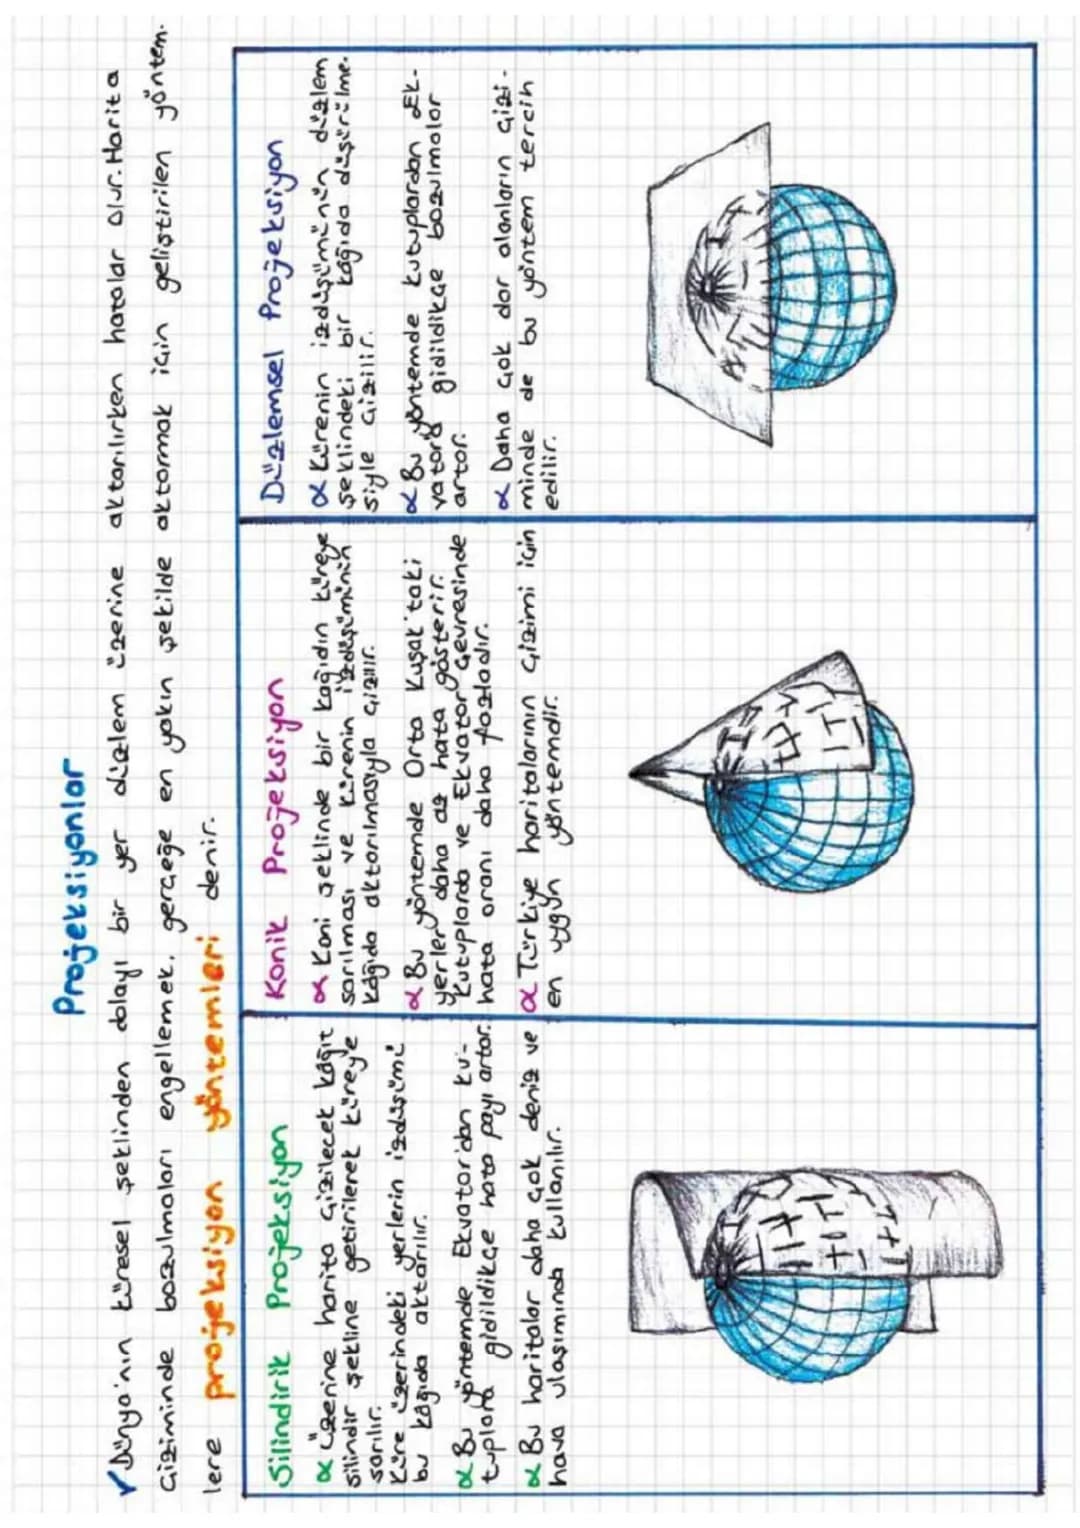 Projeksiyonlar
✓ Dünya'nın küresel şeklinden dolayı bir yer düzlem üzerine aktarılırken hatalar olur. Harita
çiziminde bozulmaları engellemek, gerçeğe en yakın şekilde aktarmak için geliştirilen yöntem-
lere projeksiyon yöntemleri denir.
Silindirik Projeksiyon
α Üzerine harita çizilecek kâğıt
silindir şekline getirilerek küreye
sarılır.
Küre üzerindeki yerlerin izdüşümü
bu kâğıda aktarılır.
α Bu yöntemde Ekvator'dan ku-
tuplara gidildikçe hata payı artar.
α Bu haritalar daha çok deniz ve
hava ulaşımında kullanılır.
Konik Projeksiyon
α Koni şeklinde bir kağıdın küreye
sarılması ve kürenin izdüşümünün
kâğıda aktarılmasıyla çizilir.
α Bu yöntemde Orta Kuşak'taki
yerler daha az hata gösterir.
Kutuplarda ve Ekvator çevresinde
hata oranı daha fazladır.
α Türkiye haritalarının çizimi için
en uygun yöntemdir.
Düzlemsel Projeksiyon
α Kürenin izdüşümünün düzlem
şeklindeki bir kâğıda düşürülme-
siyle çizilir.
α Bu yöntemde kutuplardan Ek-
vator'a gidildikçe bozulmalar
artar.
α Daha çok dar alanların çizi-
minde de bu yöntem tercih
edilir.